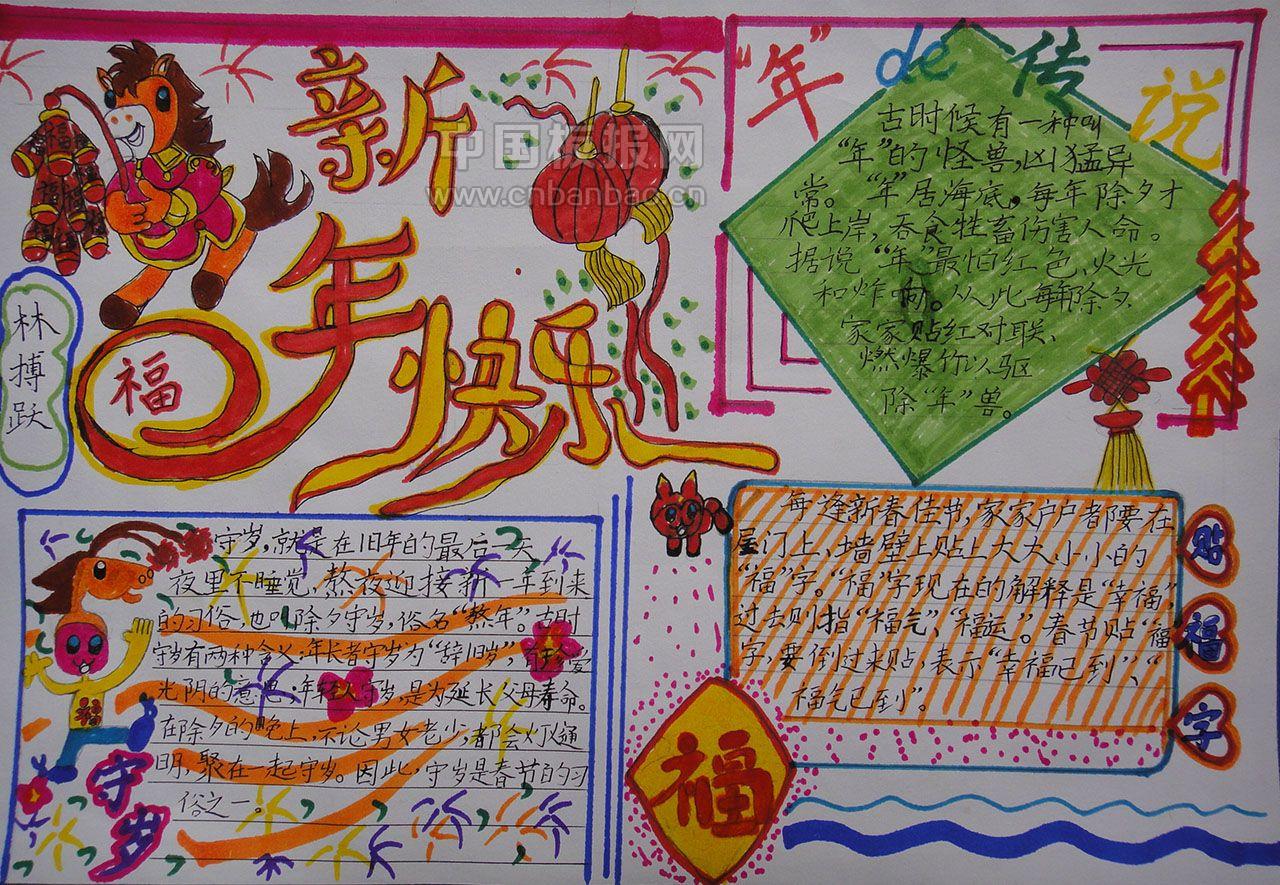 新年快乐
福
林搏跃
中国板报网
www.cnbanbao.cn
“年”de传说
古时候有一种叫
“年”的怪兽,凶猛异
常。“年”居海底,每年除夕才
爬上岸,吞食牲畜伤害人命。
据说“年”最怕红色、火光
和炸响。从此每年除夕
家家贴红对联、
燃爆竹以驱
除“年”兽。
守岁,就是在旧年的最后一天
夜里不睡觉,熬夜迎接新一年到来
的习俗,也叫除夕守岁,俗名“熬年”。古时
守岁有两种含义:年长者守岁为“辞旧岁”,
光阴的意思;年轻人守岁,是为延长父母寿命。
在除夕的晚上,不论男女老少,都会灯火通
明,聚在一起守岁。因此,守岁是春节的习
俗之一。
守岁
福
每逢新春佳节,家家户户都要在
屋门上,墙壁上贴上大大小小的
“福”字。“福”字现在的解释是“幸福”,
过去则指“福气”、“福运”。春节贴“福”
字,要倒过来贴,表示“幸福已到”、“
福气已到”。
贴福字
福